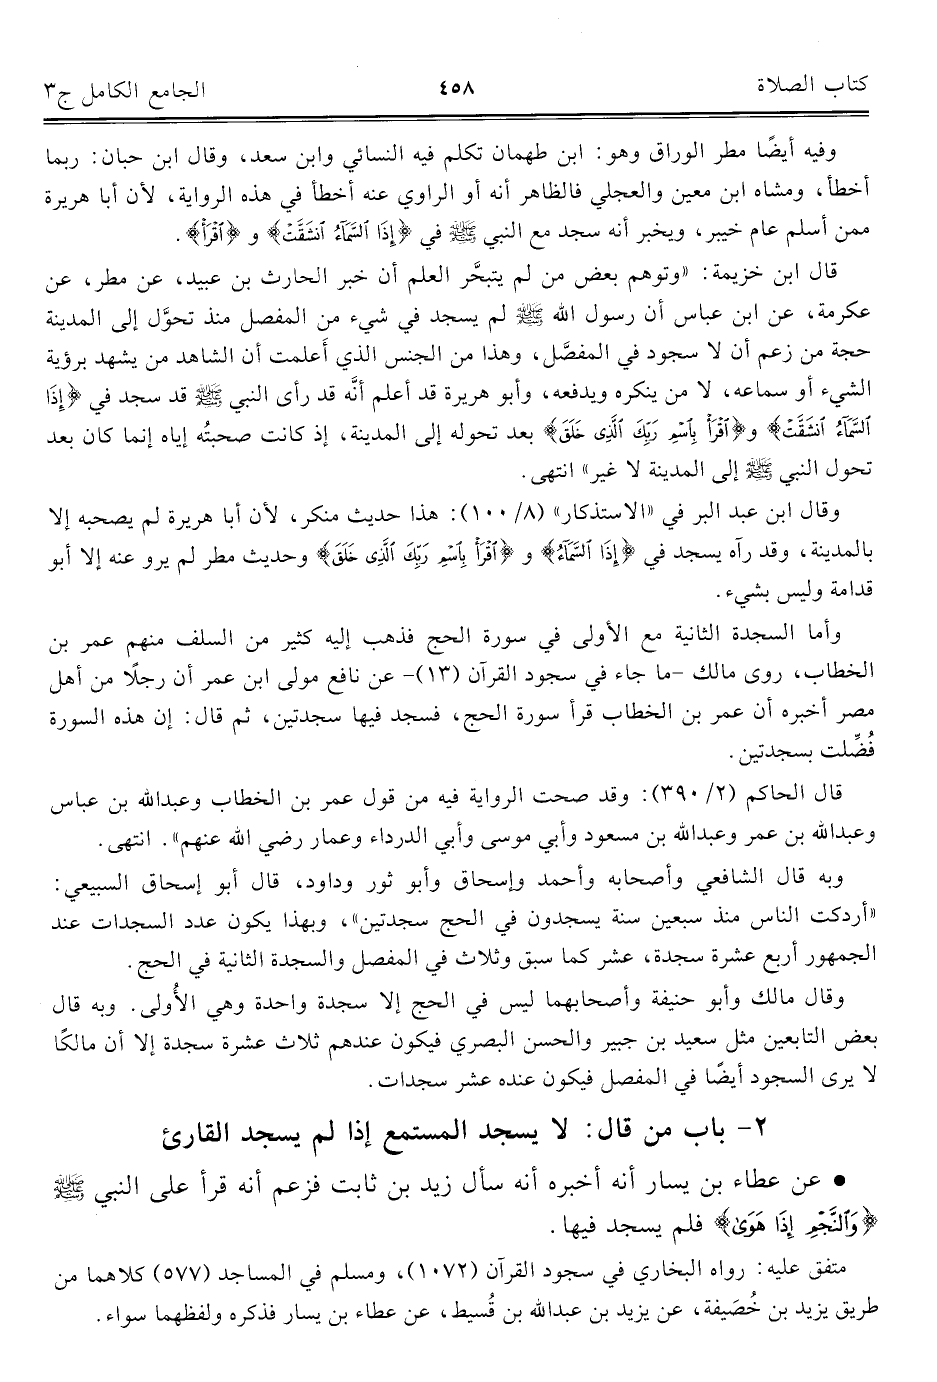 كتاب الصلاة ٤٥٨ الجامع الكامل ج٣
وفيه أيضًا مطر الوراق وهو: ابن طهمان تكلم فيه النسائي وابن سعد، وقال ابن حبان: ربما
أخطأ، ومشاه ابن معين والعجلي فالظاهر أنه أو الراوي عنه أخطأ في هذه الرواية، لأن أبا هريرة
ممن أسلم عام خيبر، ويخبر أنه سجد مع النبي ﷺ في ﴿إِذَا ٱلسَّمَآءُ ٱنشَقَّتْ﴾ و ﴿ٱقْرَأْ﴾.
قال ابن خزيمة: «وتوهم بعض من لم يتبحَّر العلم أن خبر الحارث بن عبيد، عن مطر، عن
عكرمة، عن ابن عباس أن رسول الله ﷺ لم يسجد في شيء من المفصل منذ تحوَّل إلى المدينة
حجة من زعم أن لا سجود في المفصَّل، وهذا من الجنس الذي أَعلمت أن الشاهد من يشهد برؤية
الشيء أو سماعه، لا من ينكره ويدفعه، وأبو هريرة قد أعلم أنَّه قد رأى النبي ﷺ قد سجد في ﴿إِذَا
ٱلسَّمَآءُ ٱنشَقَّتْ﴾ و﴿ٱقْرَأْ بِٱسْمِ رَبِّكَ ٱلَّذِى خَلَقَ﴾ بعد تحوله إلى المدينة، إذ كانت صحبتُه إياه إنما كان بعد
تحول النبي ﷺ إلى المدينة لا غير» انتهى.
وقال ابن عبد البر في «الاستذكار» (٨/ ١٠٠): هذا حديث منكر، لأن أبا هريرة لم يصحبه إلا
بالمدينة، وقد رآه يسجد في ﴿إِذَا ٱلسَّمَآءُ﴾ و ﴿ٱقْرَأْ بِٱسْمِ رَبِّكَ ٱلَّذِى خَلَقَ﴾ وحديث مطر لم يرو عنه إلا أبو
قدامة وليس بشيء.
وأما السجدة الثانية مع الأولى في سورة الحج فذهب إليه كثير من السلف منهم عمر بن
الخطاب، روى مالك -ما جاء في سجود القرآن (١٣)- عن نافع مولى ابن عمر أن رجلًا من أهل
مصر أخبره أن عمر بن الخطاب قرأ سورة الحج، فسجد فيها سجدتين، ثم قال: إن هذه السورة
فُضِّلت بسجدتين.
قال الحاكم (٢/ ٣٩٠): وقد صحت الرواية فيه من قول عمر بن الخطاب وعبدالله بن عباس
وعبدالله بن عمر وعبدالله بن مسعود وأبي موسى وأبي الدرداء وعمار رضي الله عنهم». انتهى.
وبه قال الشافعي وأصحابه وأحمد وإسحاق وأبو ثور وداود، قال أبو إسحاق السبيعي:
«أردكت الناس منذ سبعين سنة يسجدون في الحج سجدتين»، وبهذا يكون عدد السجدات عند
الجمهور أربع عشرة سجدة، عشر كما سبق وثلاث في المفصل والسجدة الثانية في الحج.
وقال مالك وأبو حنيفة وأصحابهما ليس في الحج إلا سجدة واحدة وهي الأُولى. وبه قال
بعض التابعين مثل سعيد بن جبير والحسن البصري فيكون عندهم ثلاث عشرة سجدة إلا أن مالكًا
لا يرى السجود أيضًا في المفصل فيكون عنده عشر سجدات.
٢- باب من قال: لا يسجد المستمع إذا لم يسجد القارئ
• عن عطاء بن يسار أنه أخبره أنه سأل زيد بن ثابت فزعم أنه قرأ على النبي ﷺ
﴿وَٱلنَّجْمِ إِذَا هَوَىٰ﴾ فلم يسجد فيها.
متفق عليه: رواه البخاري في سجود القرآن (١٠٧٢)، ومسلم في المساجد (٥٧٧) كلاهما من
طريق يزيد بن خُصَيفة، عن يزيد بن عبدالله بن قُسيط، عن عطاء بن يسار فذكره ولفظهما سواء.